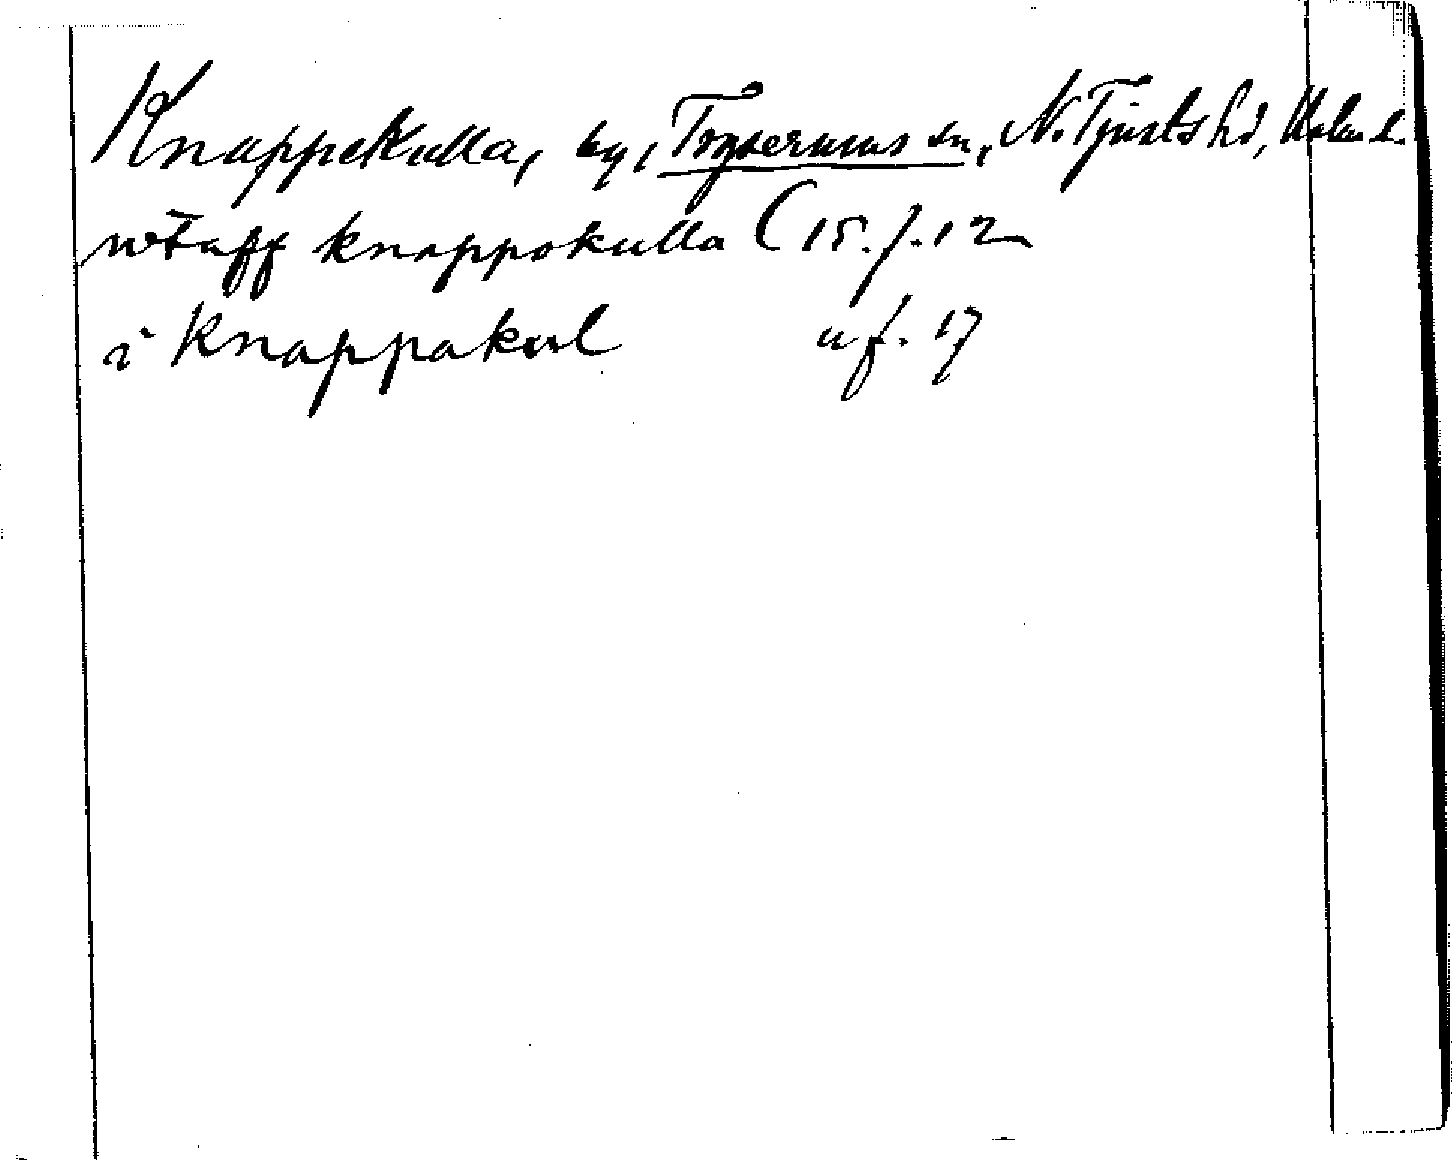 Knappekulla, by, Tryserums sn, N. Tjusts hd, Kalm. l.
wtaff knappokulla (15. f. 12
i Knappakul u f. 17